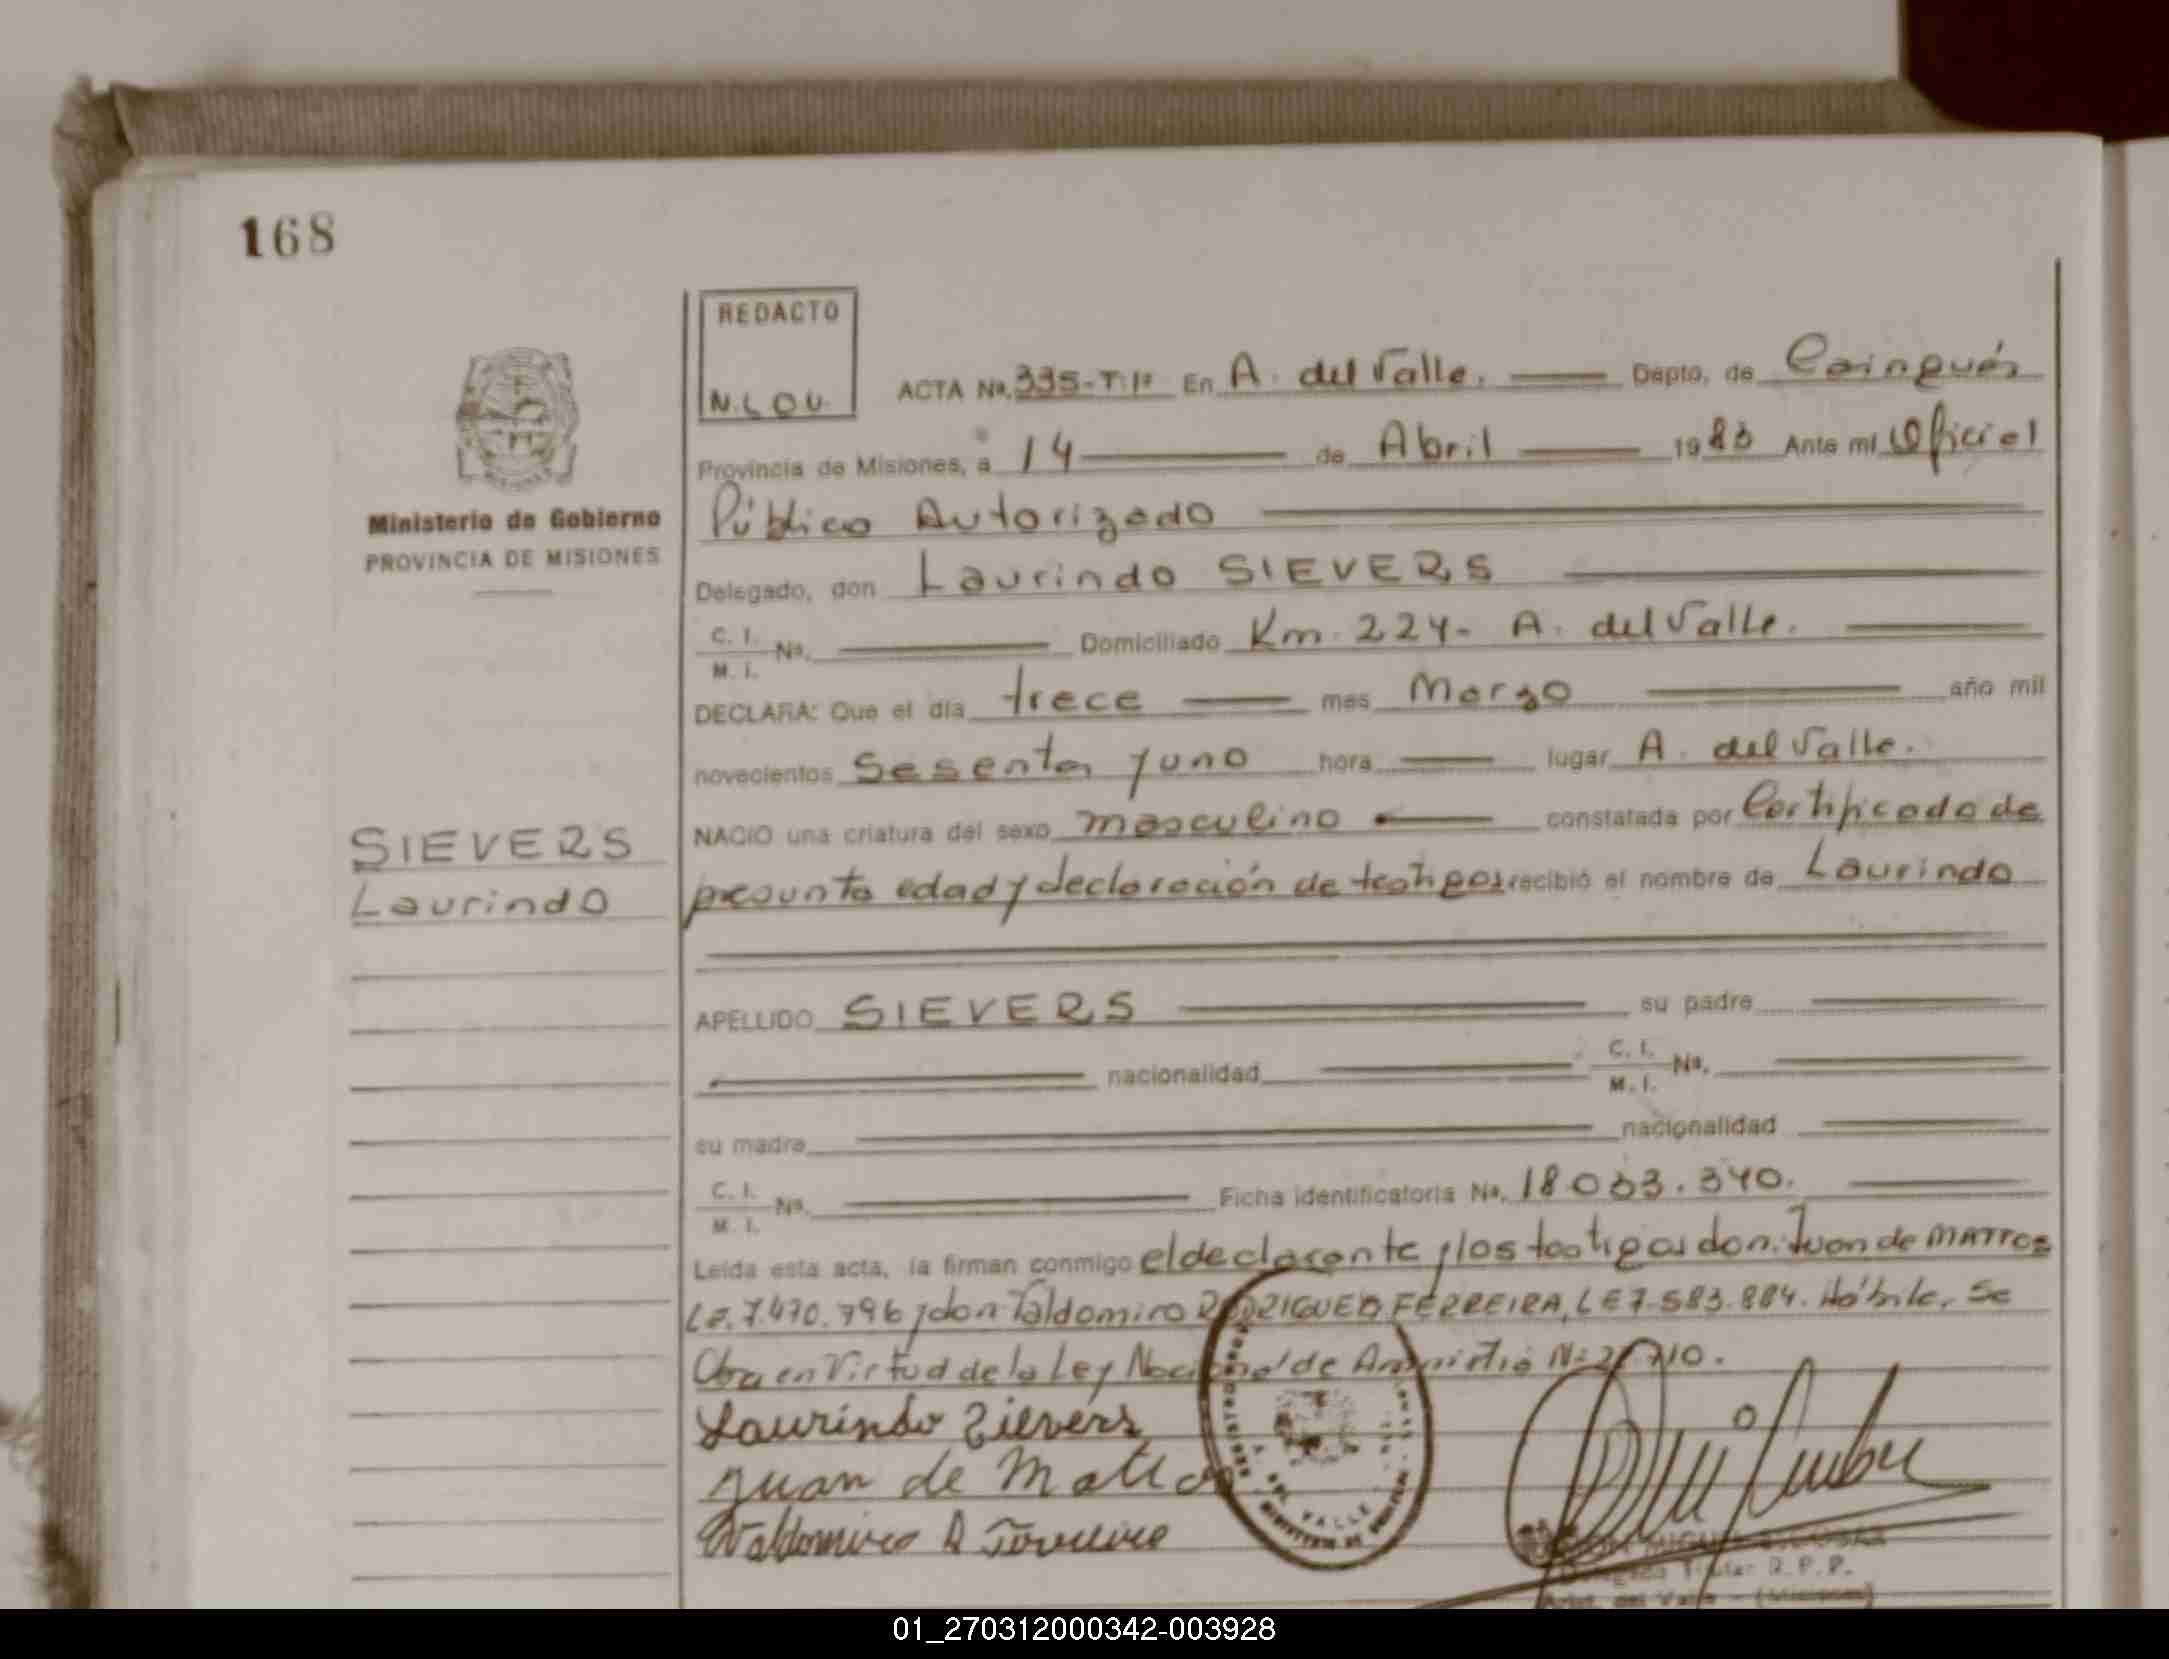 168
REDACTO
N.L.O.U.
ACTA No. 335-T.1º En A. del Valle. Depto. de Cainguás
Provincia de Misiones, a 14 de Abril 1983 Ante mi Oficial
Ministerio de Gobierno
PROVINCIA DE MISIONES
Público Autorizado
Delegado, don Laurindo SIEVERS
C. I.
M. I. Nº. Domiciliado Km. 224- A. del Valle.
DECLARA: Que el día trece mes Marzo año mil
novecientos Sesenta y uno hora lugar A. del Valle.
NACIO una criatura del sexo masculino constatada por Certificado de
presunta edad y declaración de testigos recibió el nombre de Laurindo
SIEVERS
Laurindo
APELLIDO SIEVERS su padre
nacionalidad C. I.
M. I. Nº.
su madre nacionalidad
C. I.
M. I. Nº. Ficha identificatoria Nº. 18.033.340.
Leída esta acta, la firman conmigo el declarante y los testigos don: Juan de MATTOS
L.e. 7.470.796 y don Valdomiro RODRIGUES FERREIRA, L E 7.583.884. Hábile. Se
Obra en Virtud de la Ley Nacional de Amnistía Nº 710.
Laurindo Sievers
Juan de Mattos
Valdomiro R Ferreira
A. DEL VALLE
Delegado Titular R.P.P.
Arist. del Valle - (Misiones)
01_270312000342-003928